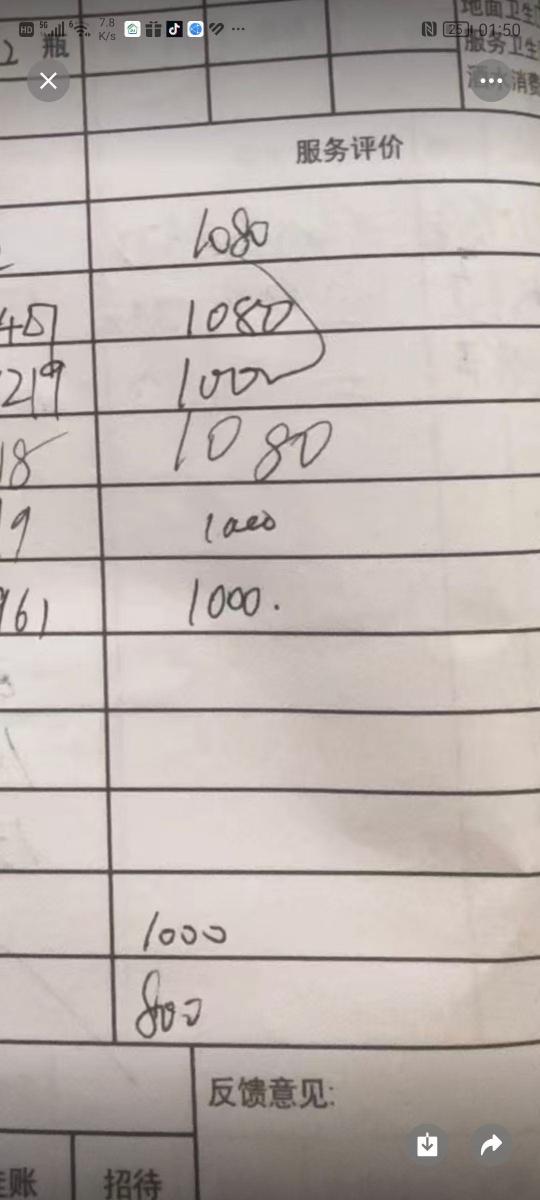 HD 5G 6 7.8 K/s ··· 25 01:50
地面卫生
2 瓶 服务卫生
酒水消费
服务评价
1080
45 1080
219 1000
18 1080
19 1000
961 1000.
1000
800
反馈意见:
挂账 招待